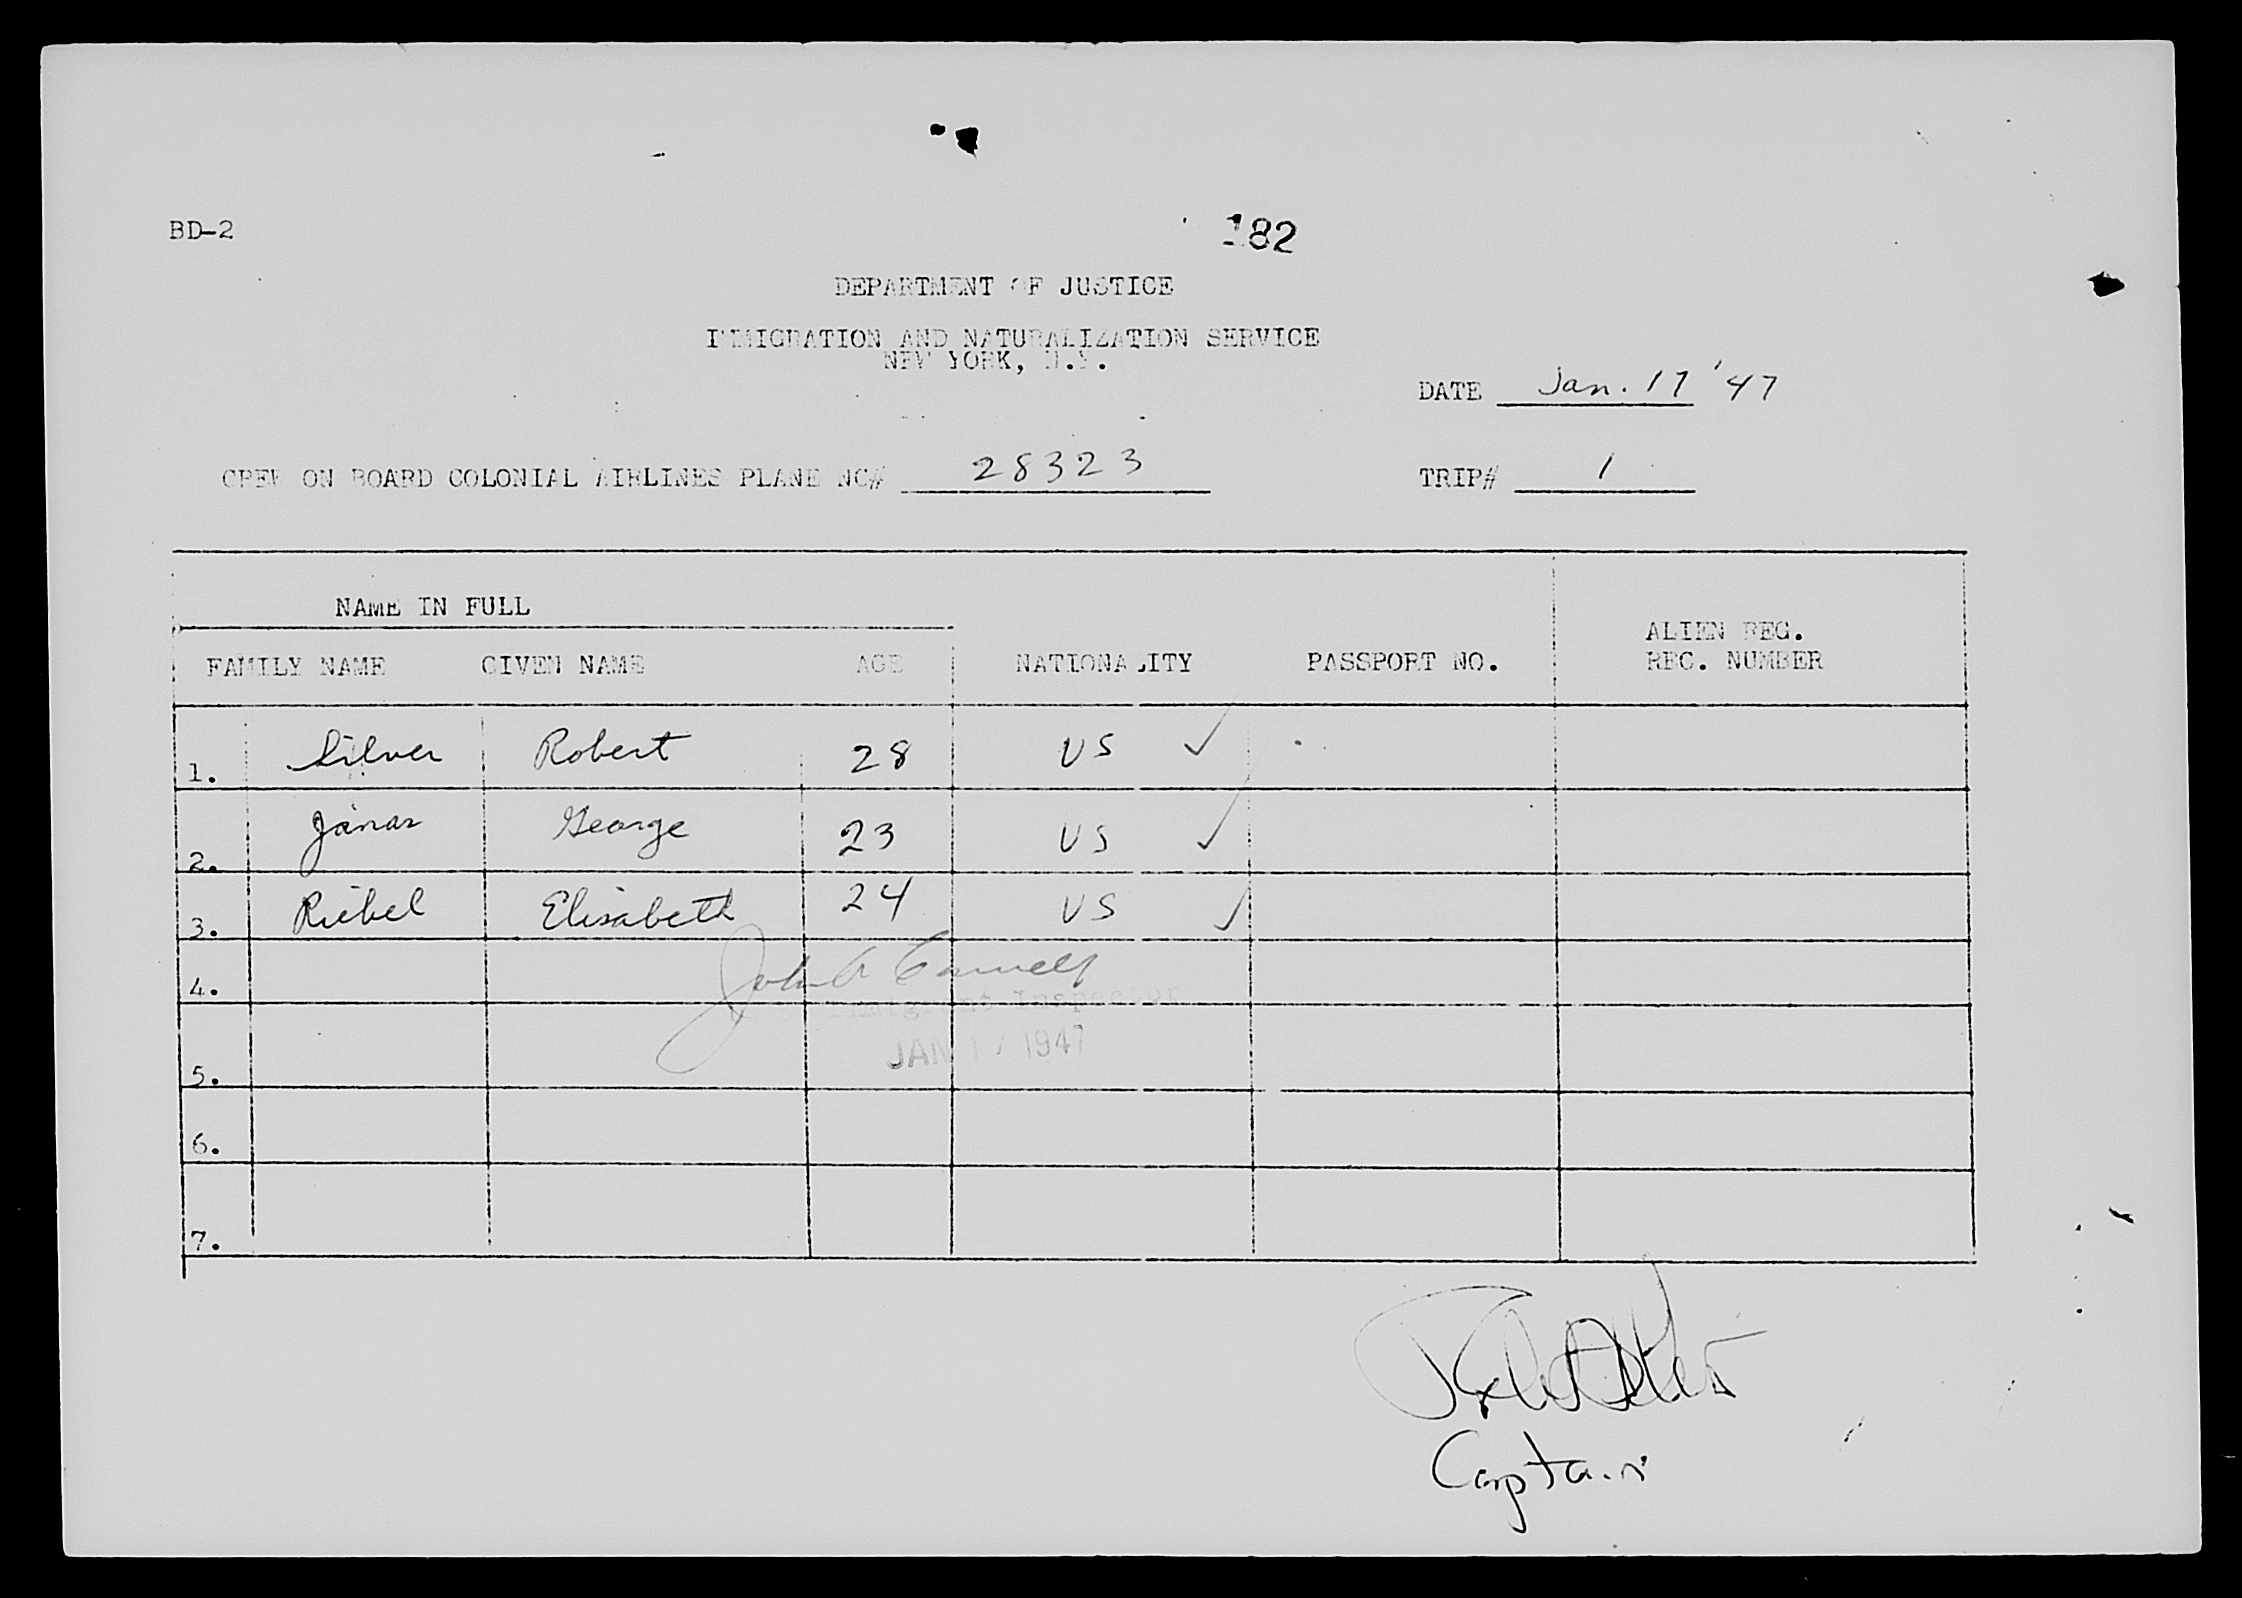 BD-2
182
DEPARTMENT OF JUSTICE
IMMIGRATION AND NATURALIZATION SERVICE
NEW YORK, N.Y.
DATE Jan. 17 '47
CREW ON BOARD COLONIAL AIRLINES PLANE NC# 28323 TRIP# 1
NAME IN FULL
ALIEN REG.
FAMILY NAME GIVEN NAME AGE NATIONALITY PASSPORT NO. REC. NUMBER
1. Silver Robert 28 US ✓
2. George 23 US ✓
3. Riebel Elisabeth 24 US ✓
John A
4.
Immigrant Inspector
JAN 17 1947
5.
6.
7.
Captain